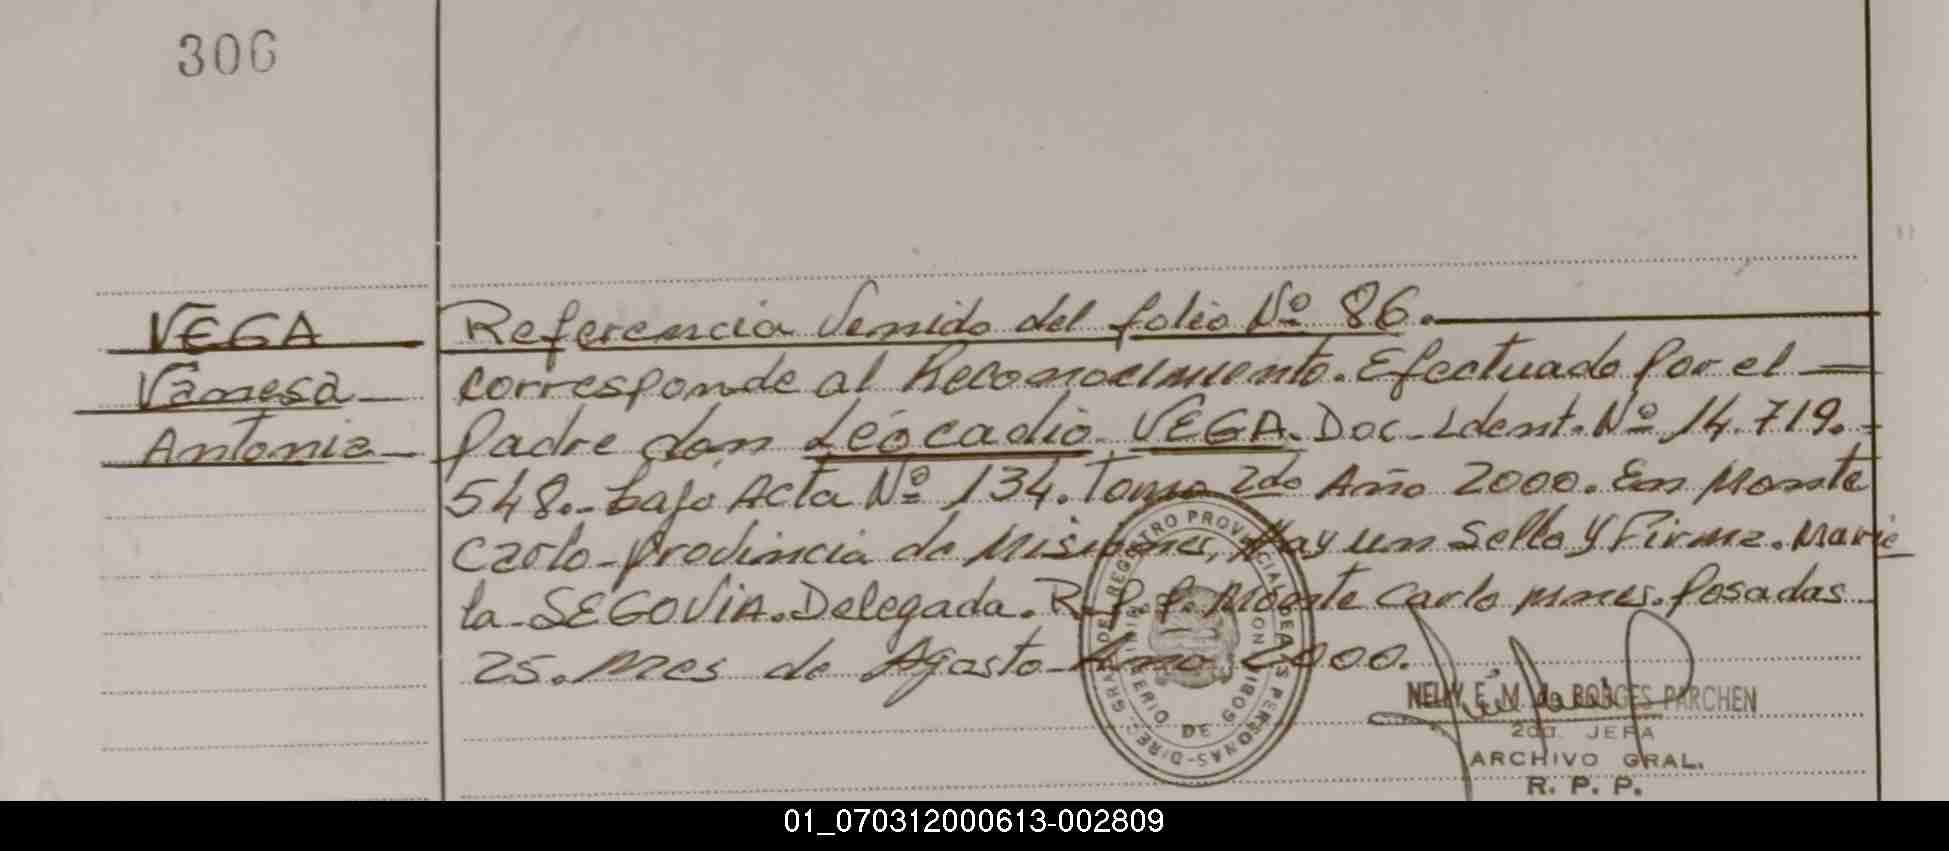 306
VEGA
Vanesa
Antonia
Referencia Venido del folio Nº 86.
corresponde al Reconocimiento. Efectuado por el
Padre don Leocadio VEGA. Doc. Ident. Nº 14.719.-
548.- bajo Acta Nº 134. Tomo 2do Año 2000. En Monte
Carlo - Provincia de Misiones, Hay un Sello y Firma. Marie
la - SEGOVIA. Delegada. R.P.P. Monte Carlo Mnes. Posadas
25. Mes de Agosto - Año 2000.
REGISTRO PROVINCIAL DE LAS PERSONAS - DIREC. GRAL. DE
MINISTERIO DE GOBIERNO
NELLY E. M. de BORGES PARCHEN
2da. JEFA
ARCHIVO GRAL.
R. P. P.
01_070312000613-002809